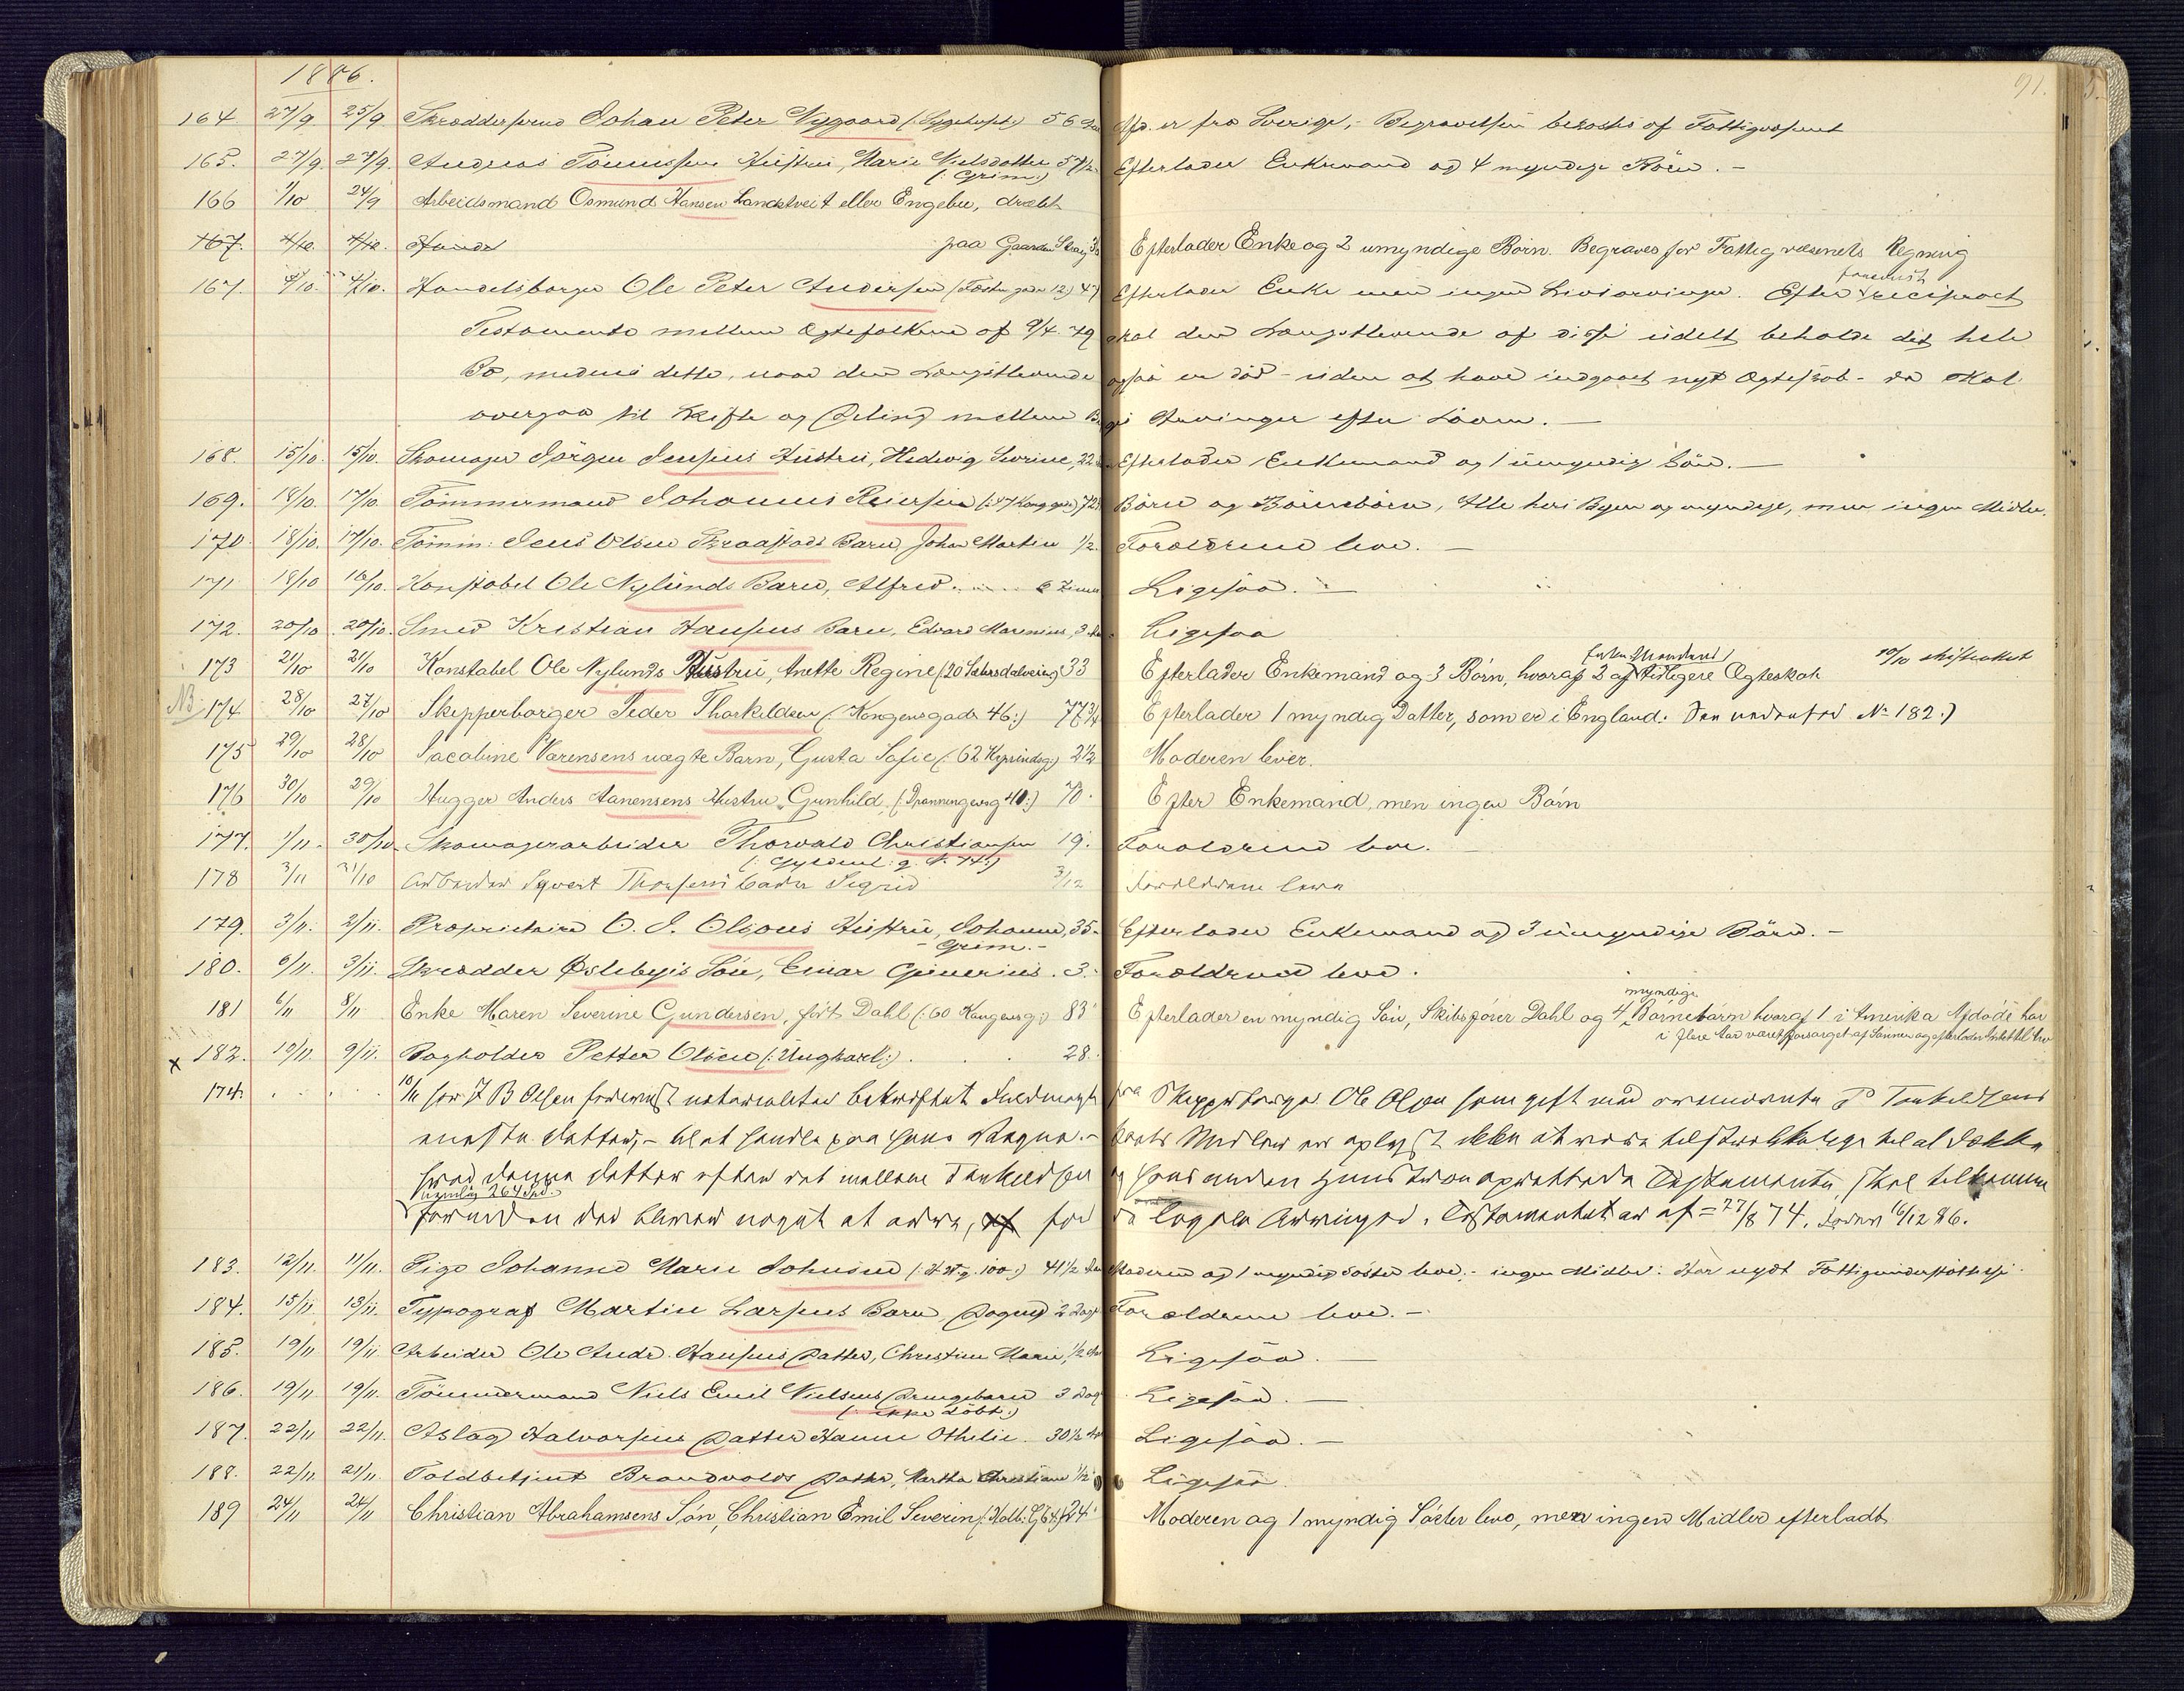 1886.
91.
164 27/9. 25/9 Skrædder Johan Peter Nygaard (: Sygehuset :) 56 er fra Sverige, - Begravelsen bekostes af Fattigvæsenet
165. 27/9. 27/9. Andreas Tønnessens Hustru, Marie Nielsdatter 57 1/2 Efterlader Enkemand og 4 myndige Børn. -
(: Grim :)
166 1/10 24/9 Arbeidsmand Osmund Hansen Landstveit eller Engebu, dræbt
paa Gaarden Efterlader Enke og 2 umyndige Børn. Begraves for Fattigvæsenets Regning
167. 4/10. 4/10.
167. 4/10. 4/10. Handelsborger Ole Peter Andersen 47 Efterlader Enke men ingen Livsarvinger. Efter reciproct
Testamente mellem Ægtefolkene af 9/4 79 skal den Længstlevende af disse udelt beholde det hele
Bo, medens dette, naar den Længstlevende ogsaa er død - uden at have indgaaet nyt Ægteskab - da skal
overgaa til Skifte og Deling mellem Arvinger efter Loven. -
168. 15/10. 15/10. Skomager Jörgen Jensens Hustru, Hedvig Severine, 22 Efterlader Enkemand og 1 umyndig Sön. -
169. 18/10. 17/10. Tömmermand Johannes Reiersen 72 Börn og Börnebörn, Alle her i Byen og myndige, men ingen Midler.
170 18/10. 17/10. Tömm: Jens Olsen Barn, Johan Martin 1/2. Forældrene leve. -
171 18/10 16/10. Konstabel Ole Nylunds Barn, Alfred Ligesaa. -
172. 20/10 20/10. Smed Kristian Hansens Barn, Edvard Marenius, 3 Ligesaa
173 21/10 21/10 Konstabel Ole Nylunds Hustru, Anette Regine 33 Efterlader Enkemand og 3 Børn, hvoraf 2 af tidligere Ægteskab
NB. 174 28/10 27/10 Skipperborger Peder Thorkildsen (: Kongensgade 46 :) 77 3/4 Efterlader 1 myndig Datter, som er i England. No 182 :)
175 29/10 28/10 Jacobine Varensens uægte Barn, Gusta Sofie 2 1/2 Moderen lever.
176 30/10 29/10 Hugger Anders Aanensens Hustru Gunhild, (: Dronningensg 40 :) 70. Efter Enkemand, men ingen Børn
177. 1/11. 30/10. Skomagerarbeider Thorvald Christiansen 19. Forældrene leve. -
178 3/11 31/10 Arbeider Syvert Thorsens datter Sigrid 3/12 Forældrene leve
179. 3/11. 2/11. Proprietair O. J. Olsens Hustru, Johanne, 35. Efterlader Enkemand og 3 umyndige Börn. -
- Grim. -
180. 6/11. 3/11. Skrædder Østebyes Sön, Einar Gunerius. 3. Forældrene leve.
181 6/11 8/11 Enke Maren Severine Gundersen, født Dahl (: 60 Kongensg :) 83 Efterlader en myndig Søn, Skibsfører Dahl og 4 myndige Børnebørn hvoraf 1 i Amerika Afdøde har
i flere Aar været forsørget af Sønnen og efterlader Intet
x 182. 10/11. 9/11. Bogholder Petter Olsen (: Ungkarl :) 28.
174. 10/11 J B Olsen notarialiter bekræftet Fuldmagt fra Skipperborger Ole Olsen som gift med P Torkildsens
eneste datter, - til at handle paa hans Vegne. -
hvad denne datter efter det mellem Torkildsen og hans anden Hustru oprettede Testamente, skal tilkomme
nemlig 264 Spd.
forinden der bliver noget at arve, for legale Arvinger. Testamentet er af 27/8 74. 16/12 86.
183. 12/11. 11/11. Pige Johanne Marie Johnsen 41 1/2 Moderen og 1 myndig Søster leve, - ingen Midler. Har nydt Fattigunderstöttelse.
184. 15/11. 13/11. Typograf Martin Larsens Barn, Dagny 2 Dage Forældrene leve. -
185. 19/11 19/11 Arbeider Ole Andr. Hansens Datter, Christine Marie, 1/2 Ligesaa. -
186. 19/11 19/11. Tömmermand Niels Emil Nielsens Drengebarn 3 Dage Ligesaa. -
(: ikke döbt :)
187. 22/11 22/11. Aslag Halvorsens Datter Hanne Othilie. 30 1/2 Ligesaa. -
188. 22/11. 21/11. Toldbetjent Brandvolds Datter, Martha Christiane 1/2 Ligesaa
189 24/11 24/11 Christian Abrahamsens Søn, Christian Emil Severin 24 Moderen og 1 myndig Søster leve, men ingen Midler efterladt